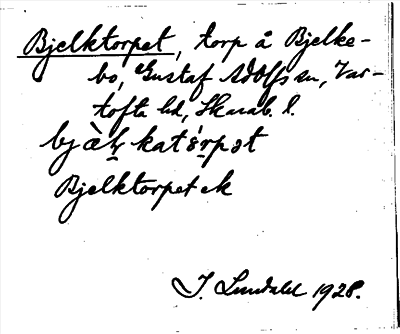 Bjelktorpet, torp å Bjelke-
bo, Gustaf Adolfs sn, Var-
tofta hd, Skarab. l.
bjälkatórpət
Bjelktorpet ek
I. Lundahl 1928.